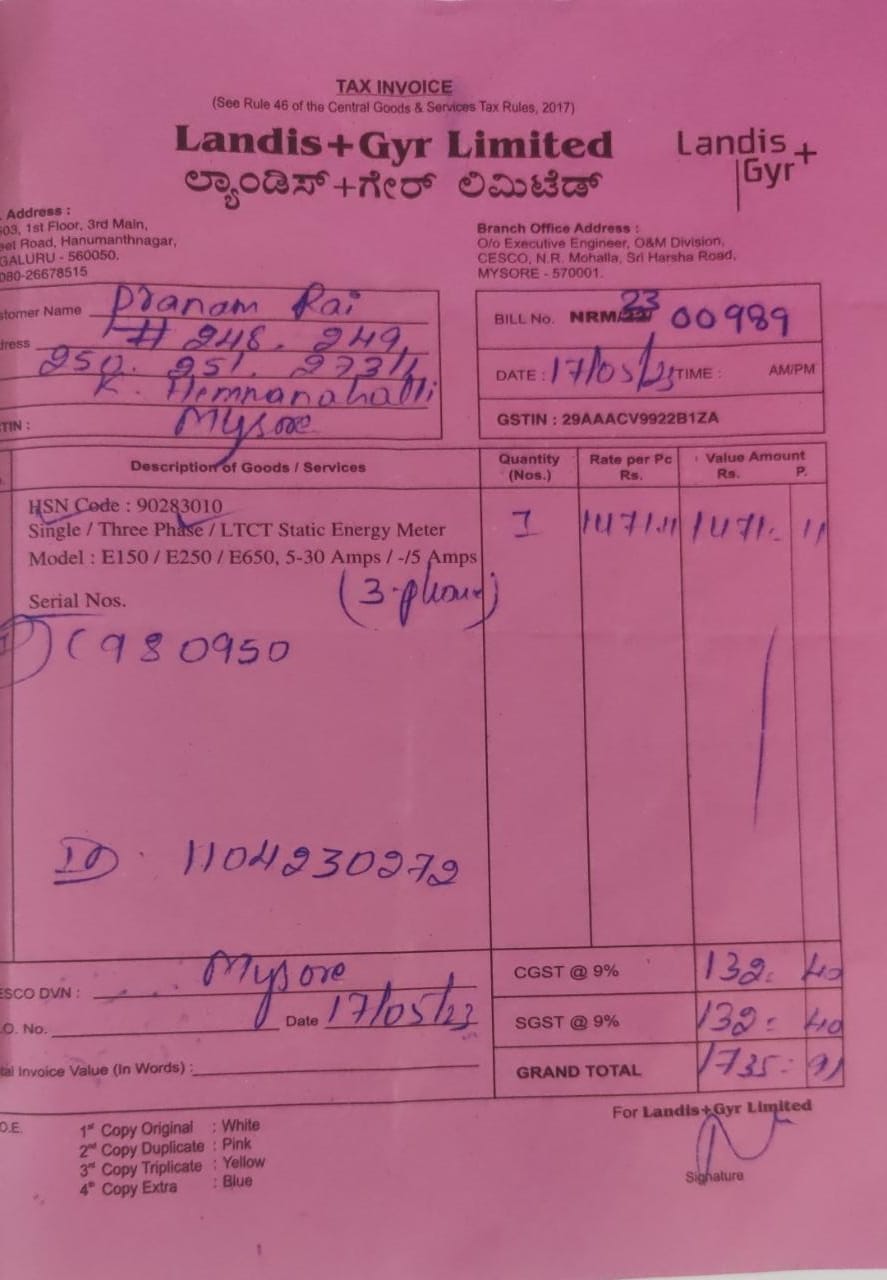 TAX INVOICE
(See Rule 46 of the Central Goods & Services Tax Rules, 2017)
Landis+Gyr Limited
ಲ್ಯಾಂಡಿಸ್+ಗೇರ್ ಲಿಮಿಟೆಡ್
Landis
Gyr+
Address :
503, 1st Floor, 3rd Main,
Road, Hanumanthnagar,
GALURU - 560050.
080-26678515
Branch Office Address :
O/o Executive Engineer, O&M Division,
CESCO, N.R. Mohalla, Sri Harsha Road,
MYSORE - 570001.
stomer Name Pranam Rai
ress # 248. 249,
250. 251. 273/1
K. Hemnanahalli
TIN : Mysore
BILL No. NRM/23 00989
DATE : 17/05/23 TIME : AM/PM
GSTIN : 29AAACV9922B1ZA
Description of Goods / Services
Quantity (Nos.)
Rate per Pc Rs.
Value Amount Rs. P.
HSN Code : 90283010
Single / Three Phase / LTCT Static Energy Meter
Model : E150 / E250 / E650, 5-30 Amps / -/5 Amps
1 1471.11 1471. 11
(3-phase)
Serial Nos.
1) C980950
ID. 1104230272
ESCO DVN : Mysore
.O. No. Date 17/05/23
tal Invoice Value (In Words) :
CGST @ 9% 132. 40
SGST @ 9% 132. 40
GRAND TOTAL 1735. 91
O.E.
1st Copy Original : White
2nd Copy Duplicate : Pink
3rd Copy Triplicate : Yellow
4th Copy Extra : Blue
For Landis+Gyr Limited
Signature